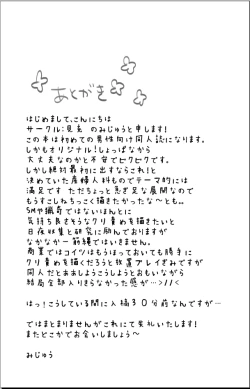 あとがき
はじめまして、こんにちは
サークル:見名 のみじゅうと申します!
この本は初めての男性向け同人誌になります。
しかもオリジナル!しょっぱなから
大丈夫なのかと不安でビクビクです。
しかし絶対最初に出すならこれ!と
決めていた産婦人科ものでテーマ的には
満足です ただちょっと急ぎ足な展開なので
もうすこしねちっこく描きたかったな~とも。。
SMや猟奇ではないほんとに
気持ち良さそうなクリ責めを描きたいと
日夜収集と研究に励んでおりますが
なかなか一筋縄ではいきません。
商業ではコイツはもうほっておいても勝手に
クリ責めを描くだろうと放置プレイぎみですが
同人だとああしようこうしようとおもいながら
結局全部入りきらなかった感が…>//<
はっ!こうしている間に入稿30分前なんですが…
ではまとまりませんがこれにて失礼いたします!
またどこかでお会いしましょう~
みじゅう